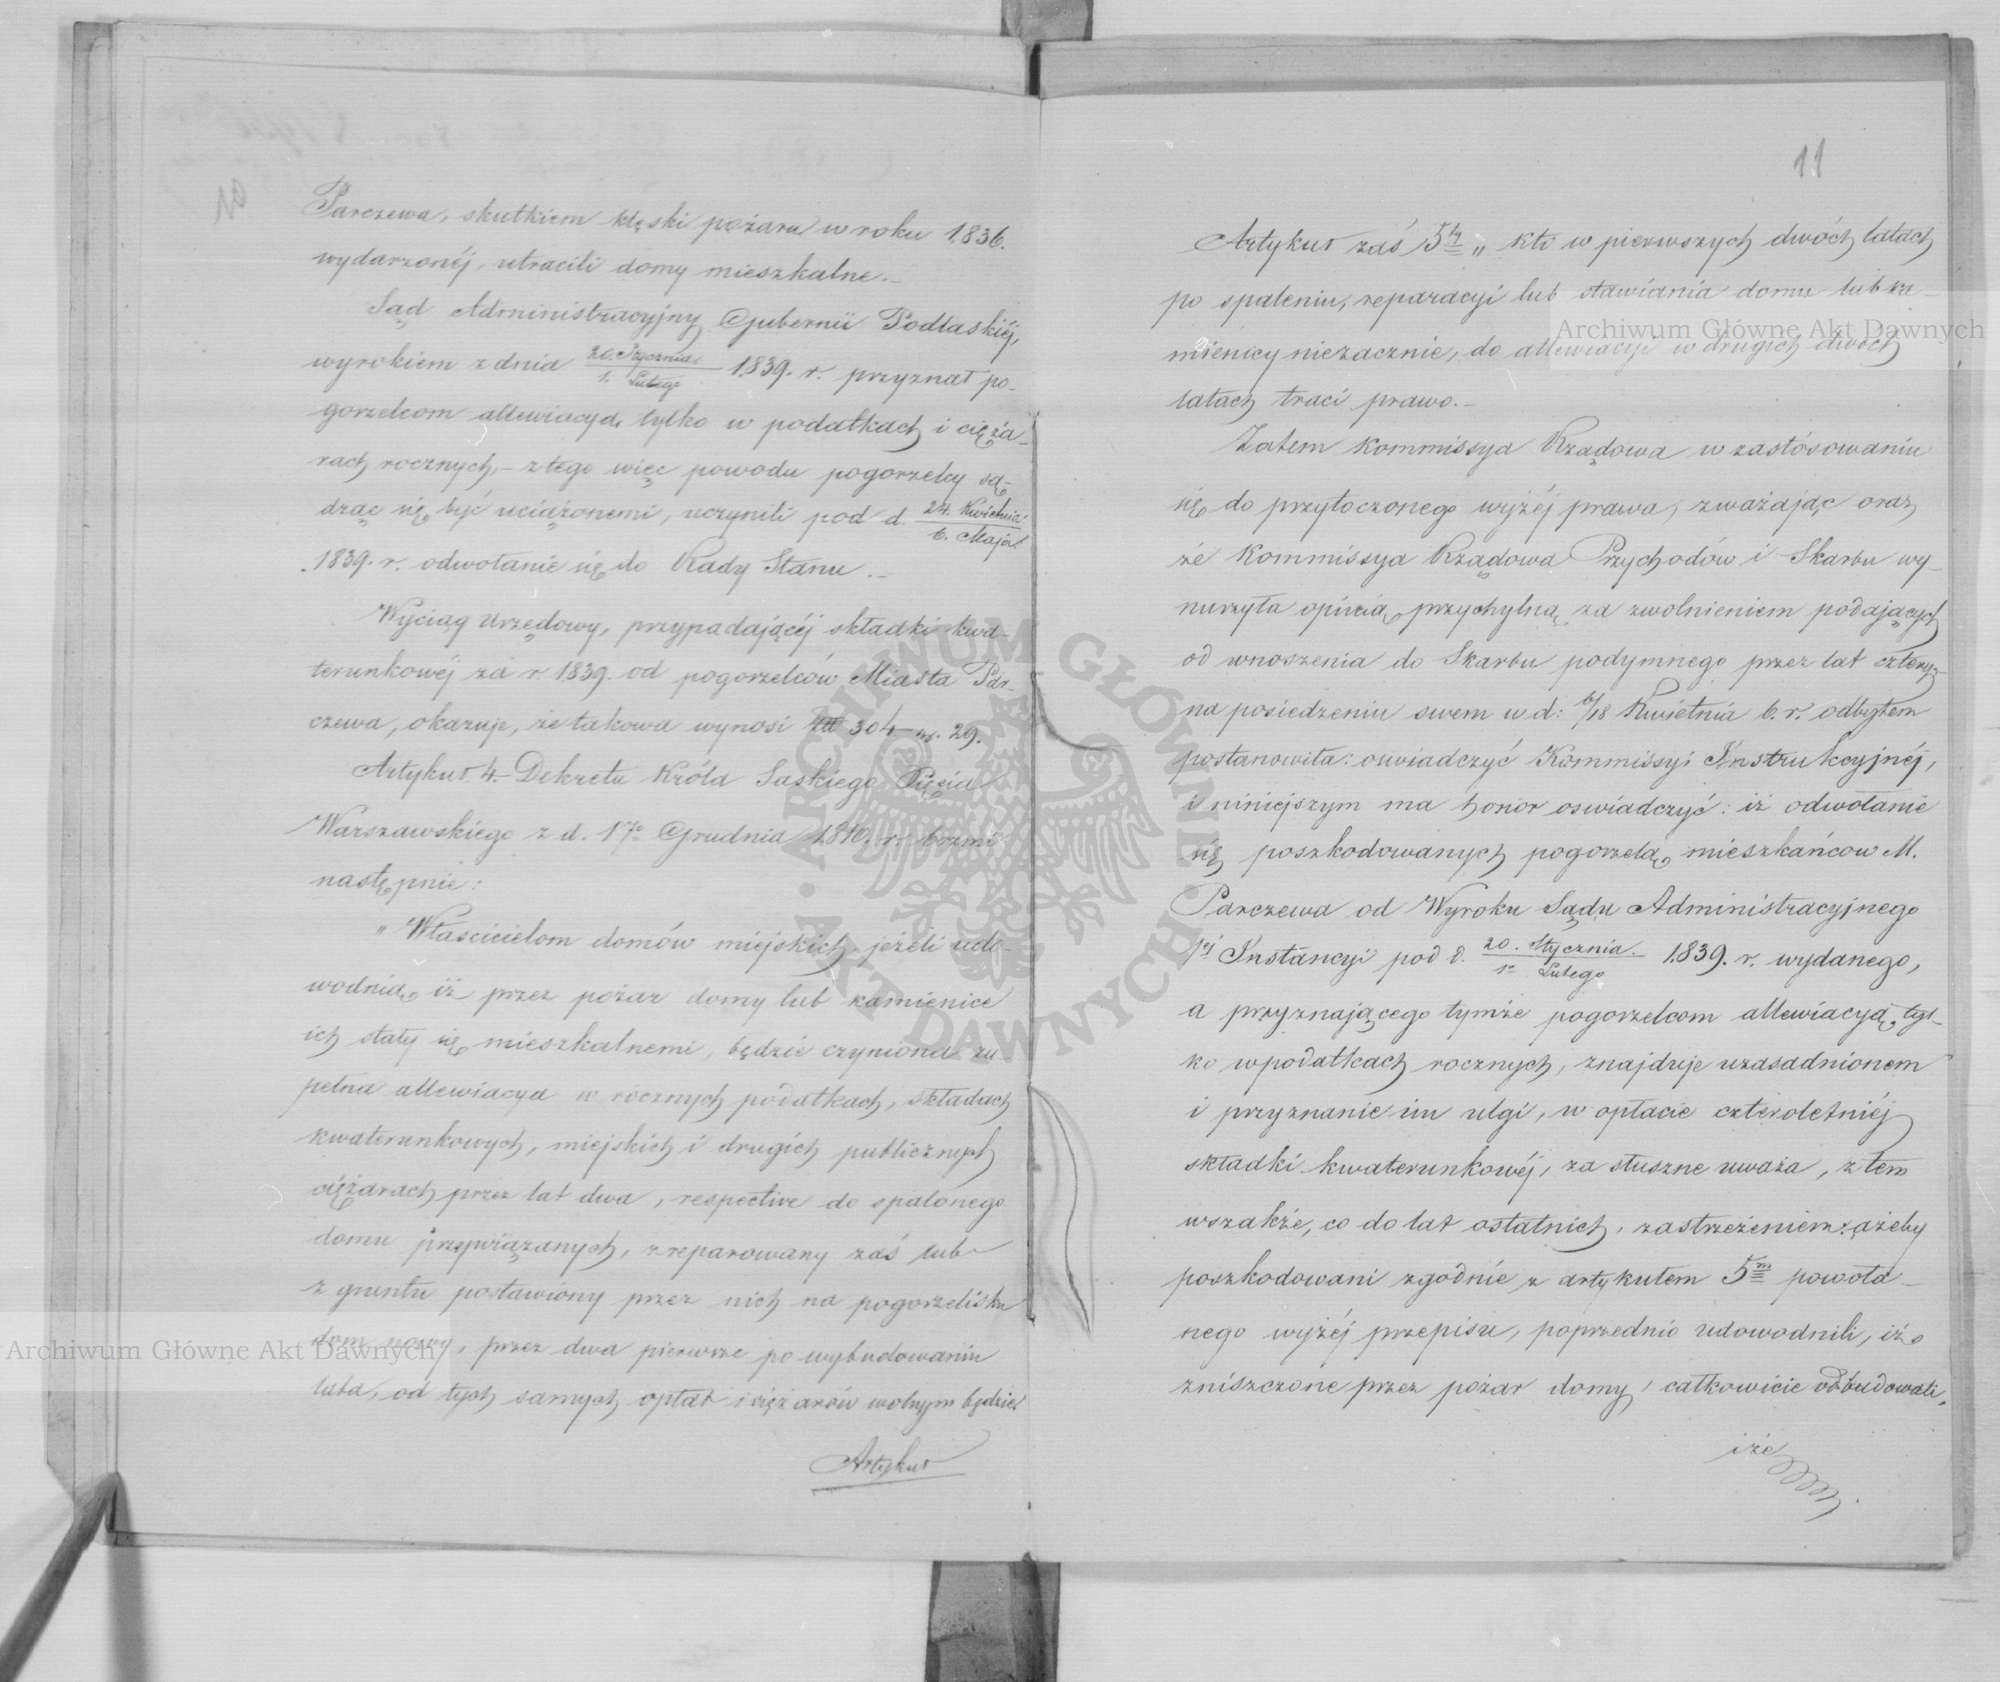 Parczewa, skutkiem klęski pożaru w roku 1836.
wydarzonéj, utracili domy mieszkalne.–
Sąd Administracyjny Gubernii Podlaskiéj,
wyrokiem z dnia 20. Stycznia / 1. Lutego 1839. r. przyznał po-
gorzelcom allewiacyą tylko w podatkach i cięża-
rach rocznych,– z tego więc powodu pogorzelcy są-
dząc się być uciążonemi, uczynili pod d. 24. Kwietnia / 6. Maja
1839. r. odwołanie się do Rady Stanu.–
Wyciąg urzędowy, przypadającéj składki kwa-
terunkowéj za r. 1839. od pogorzelców Miasta Par-
czewa, okazuje, że takowa wynosi 304 gr. 29.
Artykuł 4.– Dekretu Króla Saskiego Xięcia
Warszawskiego z d. 17º Grudnia 1810. r. brzmi
następnie:
„Właścicielom domów miejskich, jeżeli udo-
wodnią, iż przez pożar domy lub kamienice
ich stały się mieszkalnemi, będzie czyniona zu-
pełna allewiacya w rocznych podatkach, składach
kwaterunkowych, miejskich i drugich publicznych
ciężarach przez lat dwa, respective do spalonego
domu przywiązanych, zreparowany zaś lub
z gruntu postawiony przez nich na pogorzelisku
dom nowy, przez dwa pierwsze po wybudowaniu
lata, od tych samych opłat i ciężarów wolnym będzie.
Artykuł
11
Artykuł zaś 5ty „kto w pierwszych dwóch latach
po spaleniu, reparacyi lub stawiania domu lub ka-
mienicy niezacznie, do allewiacyi w drugich dwóch
latach traci prawo.–
Zatem Kommissya Rządowa w zastósowaniu
się do przytoczonego wyżéj prawa, zważając oraz,
że Kommissya Rządowa Przychodów i Skarbu wy-
nurzyła opinią, przychylną za zwolnieniem podających
od wnoszenia do Skarbu podymnego przez lat cztery,
na posiedzeniu swem w d: 6/18 Kwietnia b. r. odbytem
postanowiła: oswiadczyć Kommissyi Instrukcyjnéj,
i niniejszym ma honor oswiadczyć: iż odwołanie
się poszkodowanych pogorzelą, mieszkańcow M.
Parczewa od Wyroku Sądu Administracyjnego
1éj Instancyi pod d. 20. Stycznia. / 1º Lutego 1839. r. wydanego,
a przyznającego tymże pogorzelcom allewiacyą, tyl-
ko w podatkach rocznych, znajduje uzasadnionem
i przyznanie im ulgi, w opłacie czteroletniéj
składki kwaterunkowéj, za słuszne uważa, z tem
wszakże, co do lat ostatnich, zastrzeżeniem: ażeby
poszkodowani zgodnie z artykułem 5m powoła-
nego wyżéj przepisu, poprzednio udowodnili, iż
zniszczone przez pożar domy, całkowicie odbudowali,
iże
Archiwum Główne Akt Dawnych
Archiwum Główne Akt Dawnych
ARCHIWUM GŁÓWNE AKT DAWNYCH